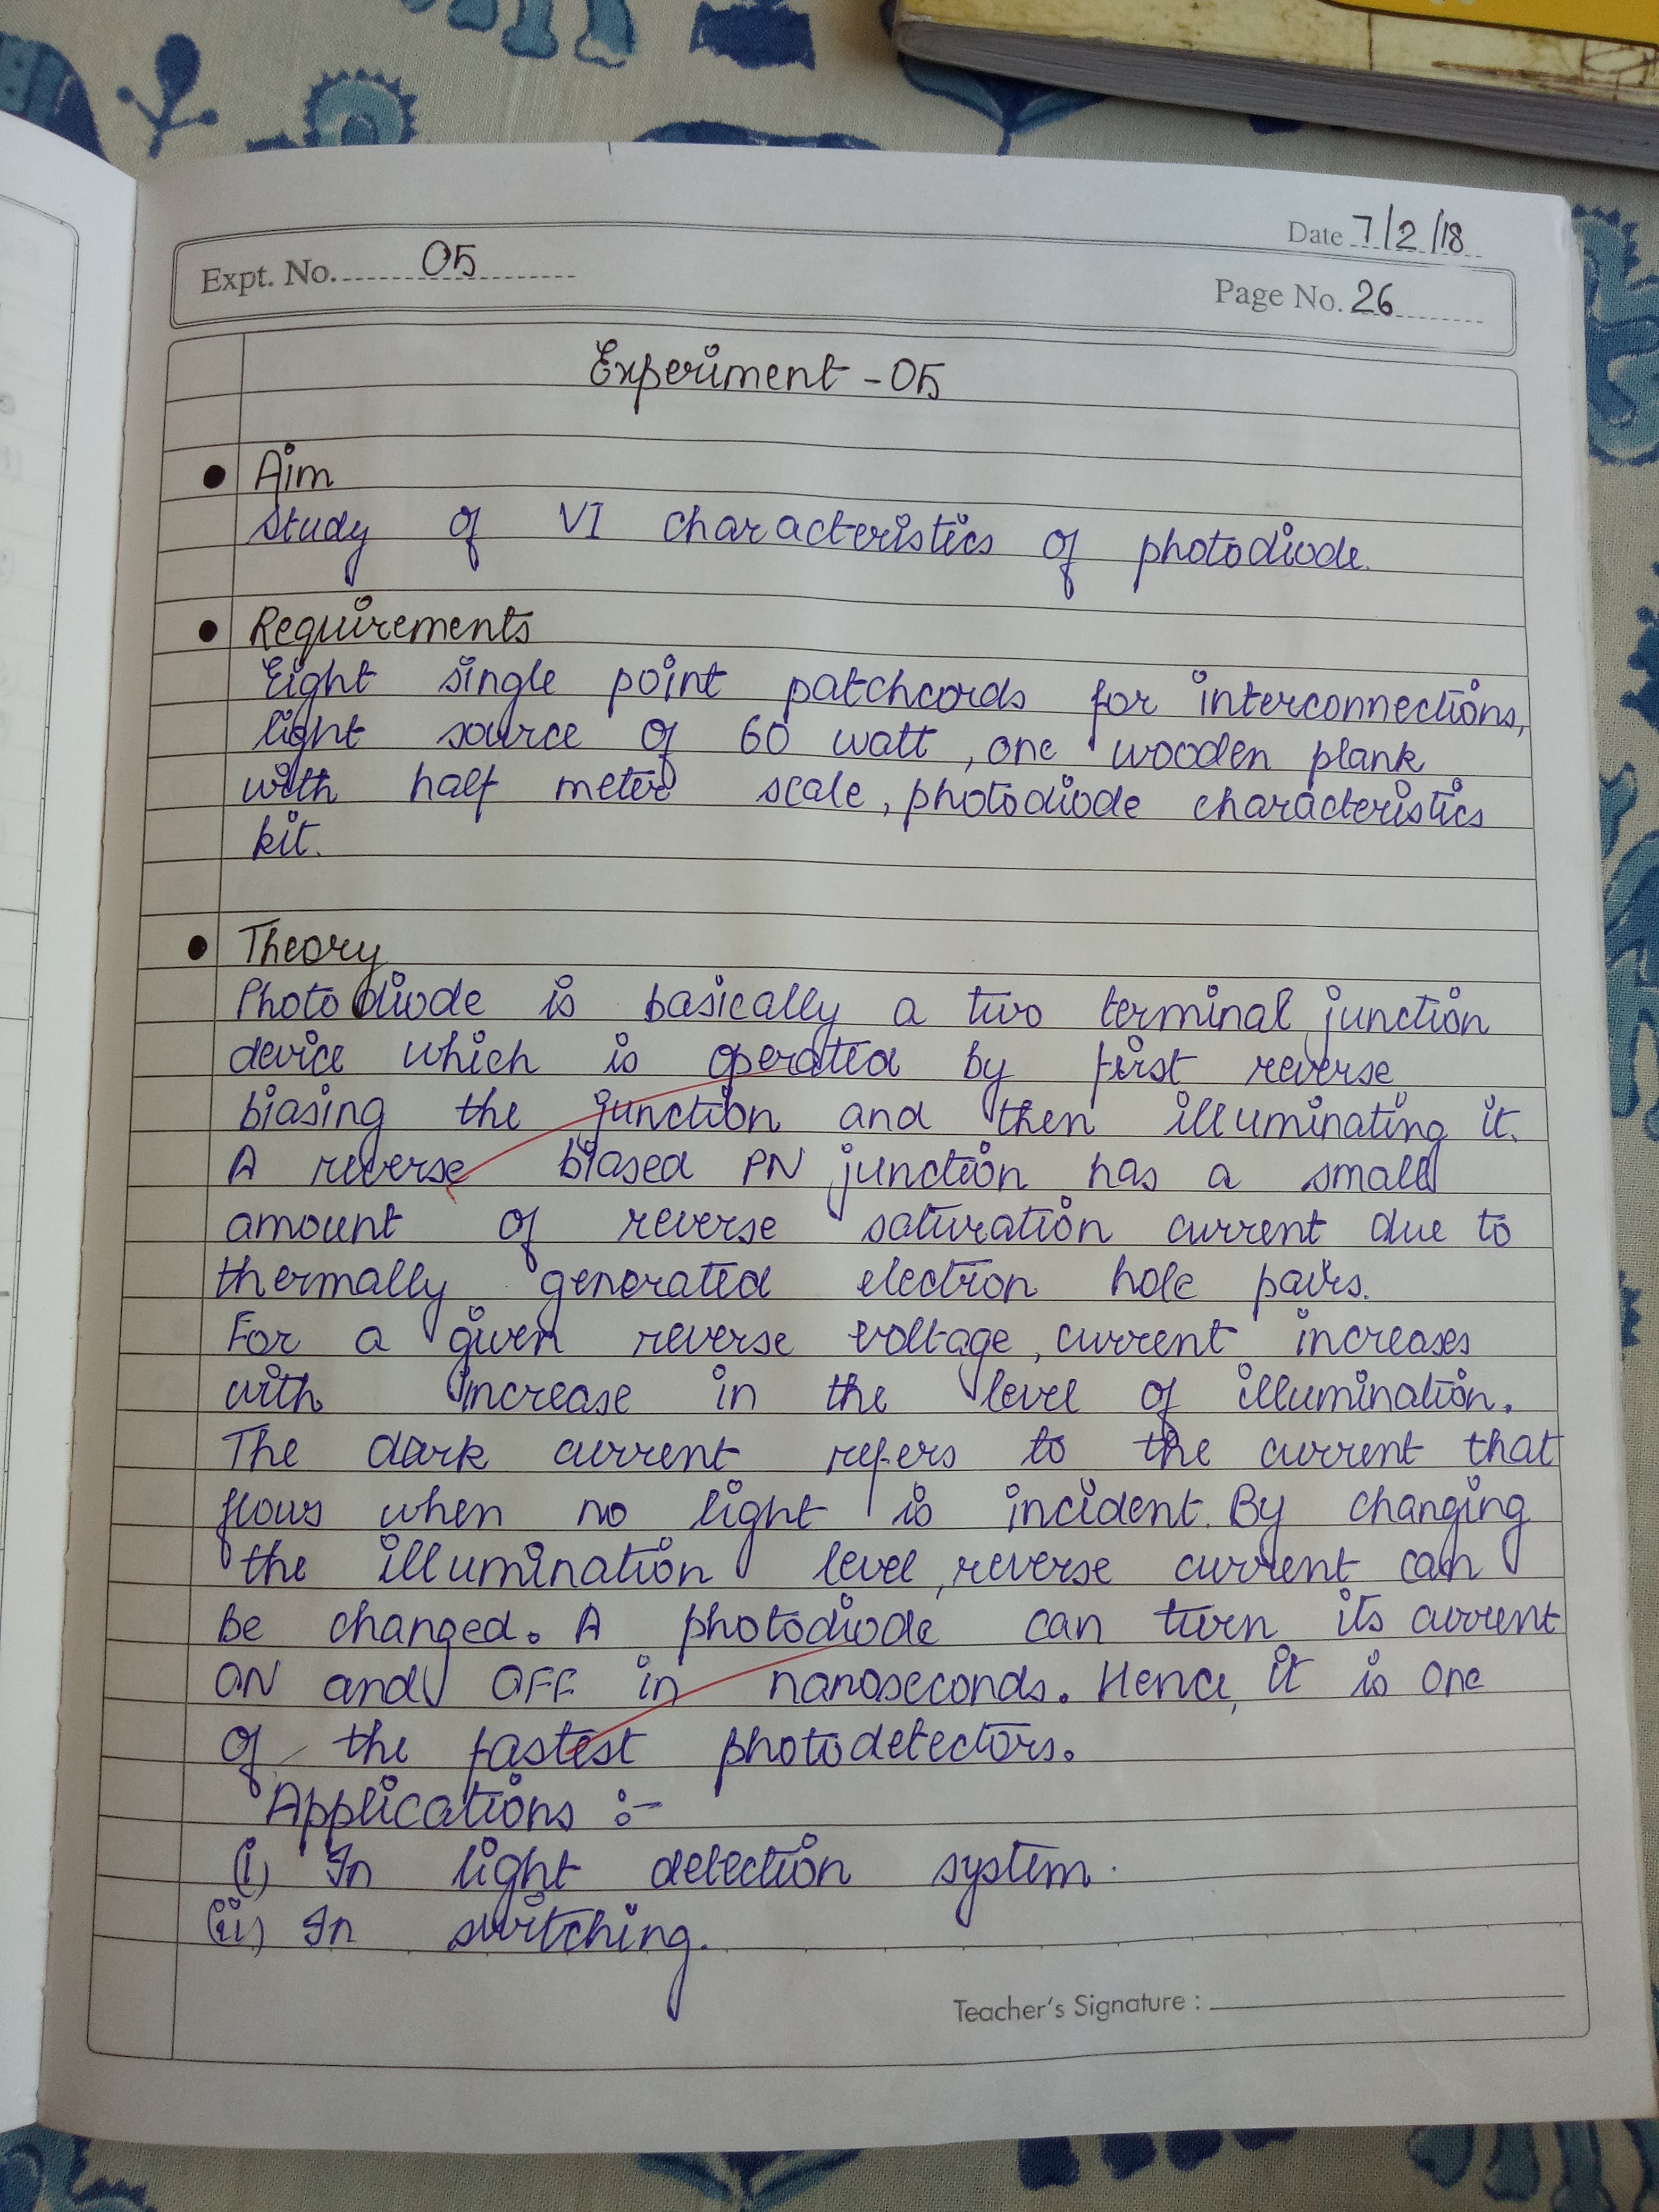 Date 7/2/18
Expt. No. 05
Page No. 26
Experiment - 05
Aim
Study of VI characteristics of photodiode.
Requirements
Eight single point patchcords for interconnections,
light source of 60 watt, one wooden plank
with half meter scale, photodiode characteristics
kit.
Theory
Photodiode is basically a two terminal junction
device which is operated by first reverse
biasing the junction and then illuminating it.
A reverse biased PN junction has a small
amount of reverse saturation current due to
thermally generated electron hole pairs.
For a given reverse voltage, current increases
with increase in the level of illumination.
The dark current refers to the current that
flows when no light is incident. By changing
the illumination level, reverse current can
be changed. A photodiode can turn its current
ON and OFF in nanoseconds. Hence, it is one
of the fastest photodetectors.
Applications :-
(i) In light detection system.
(ii) In switching.
Teacher's Signature :